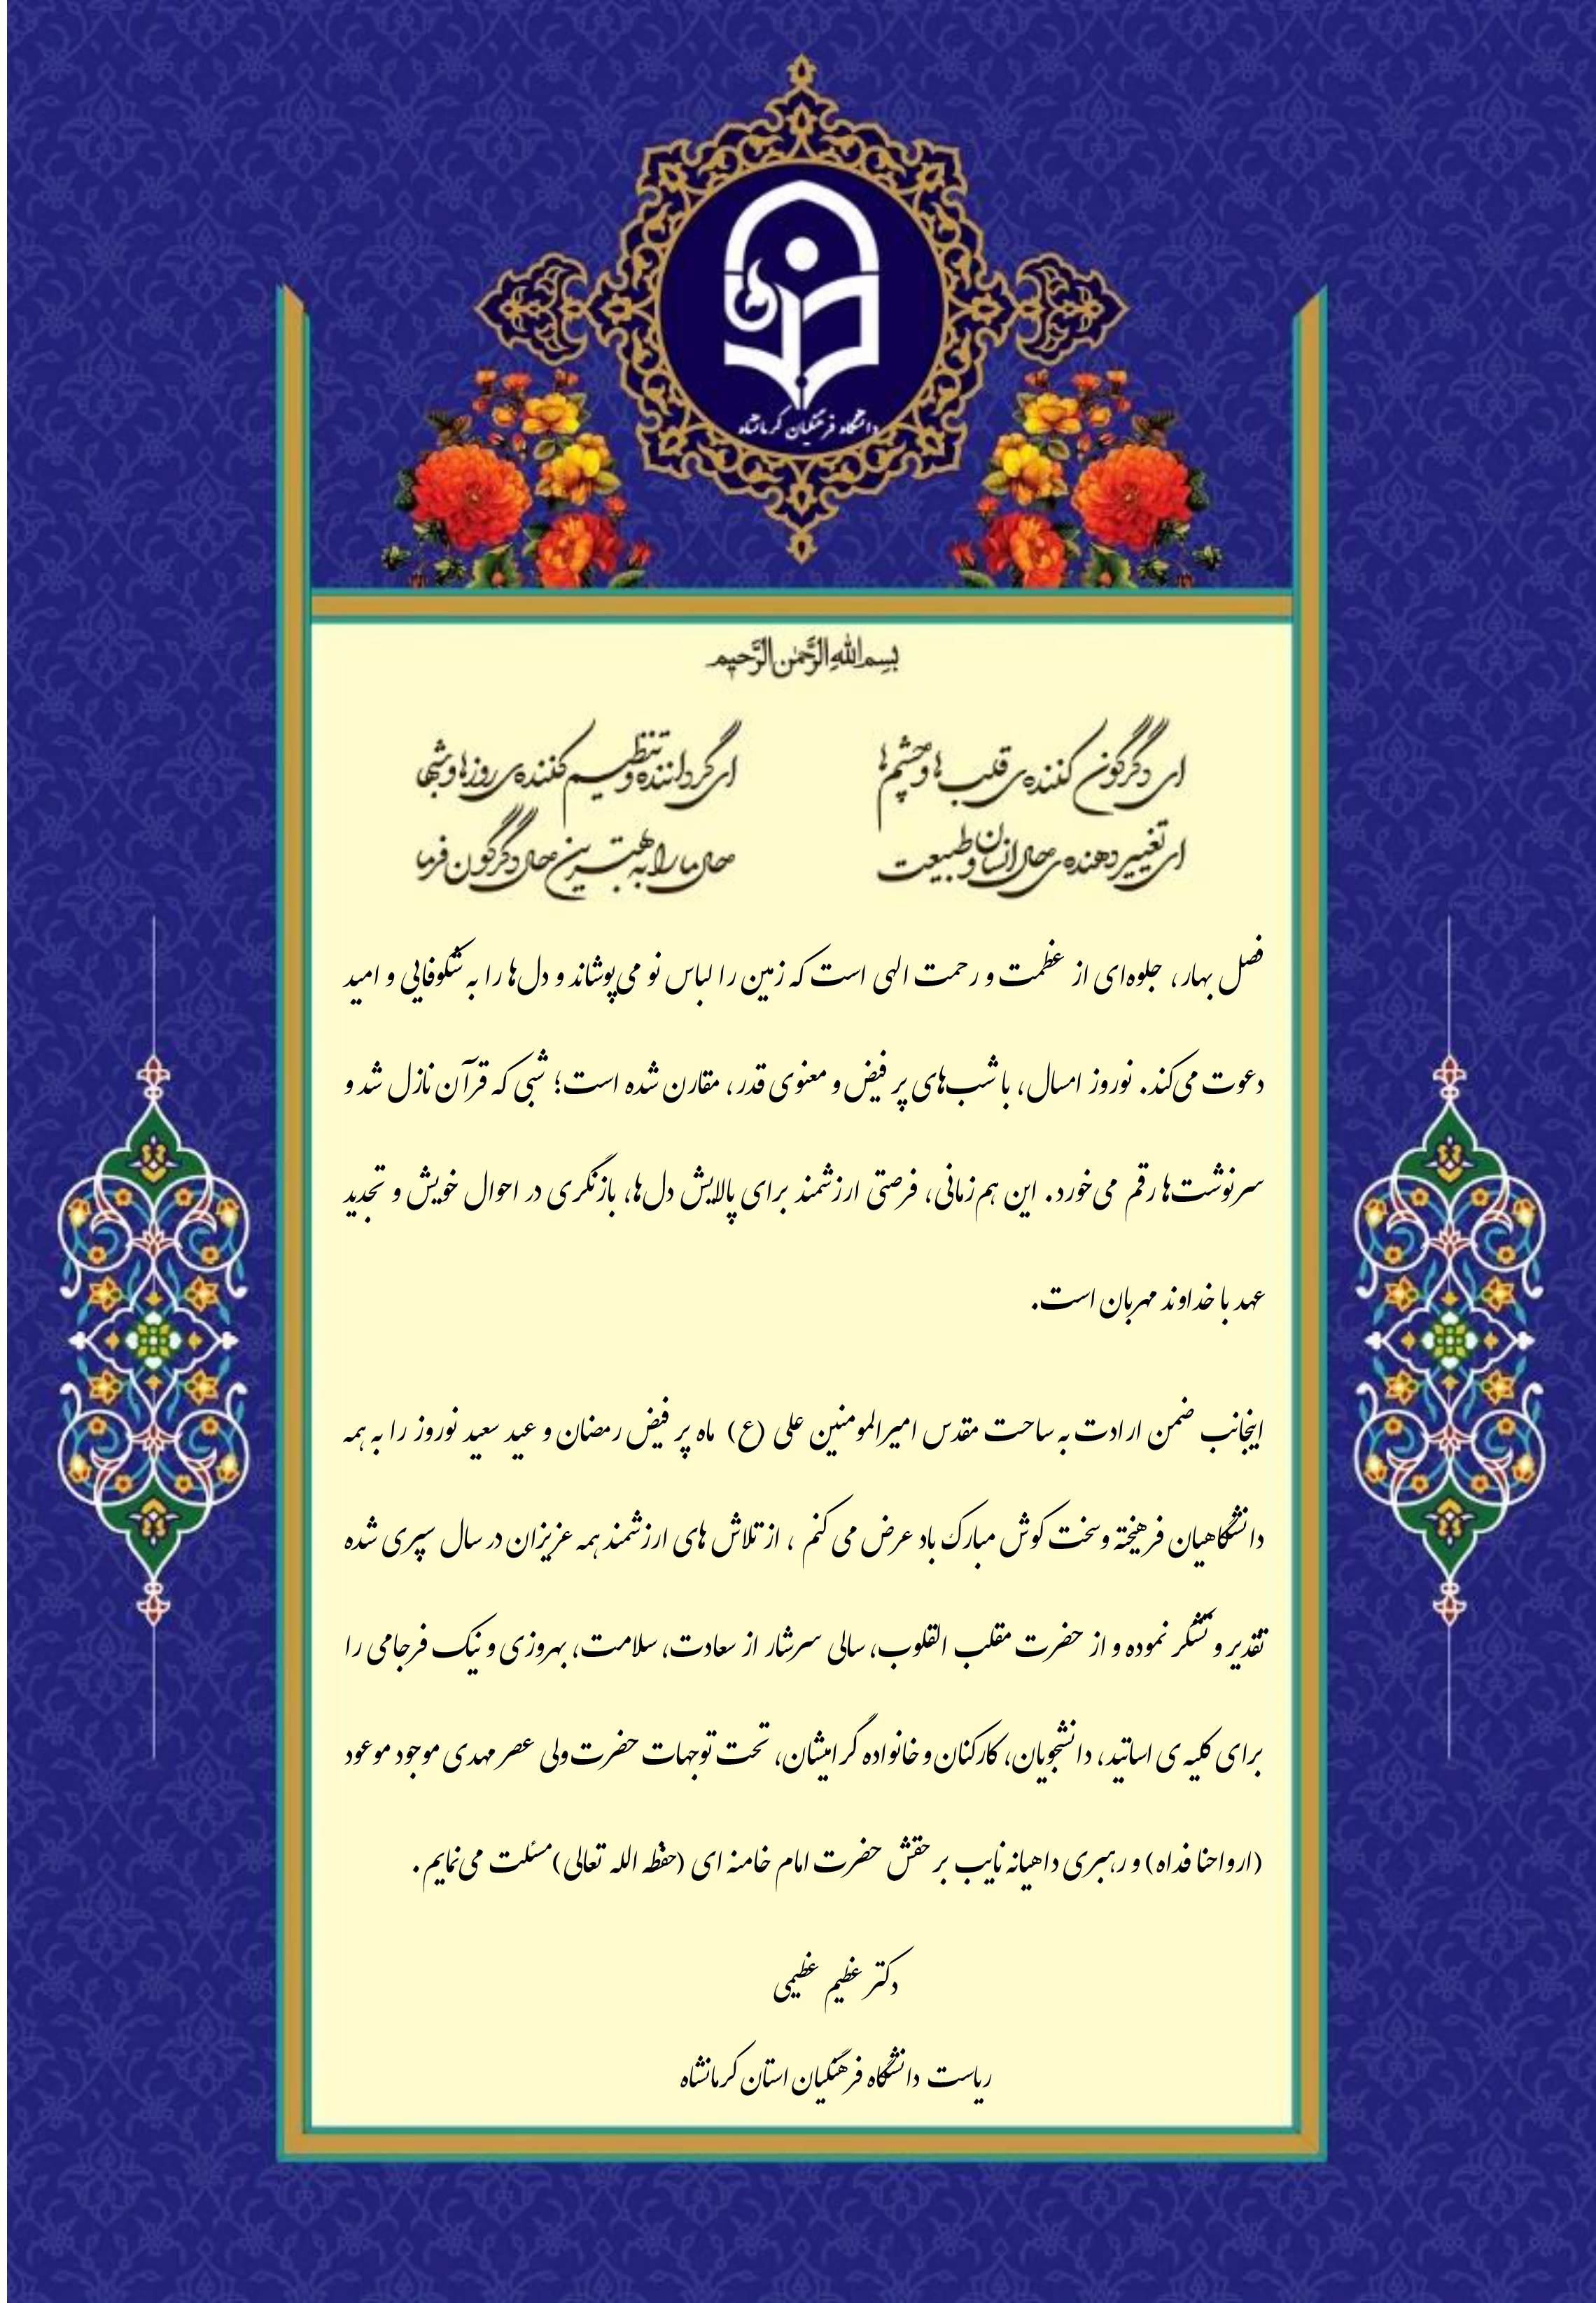 دانشگاه فرهنگیان کرمانشاه
بسم الله الرَّحمٰن الرَّحیم
ای دگرگون کننده‌ی قلب‌ها و چشم‌ها ای گرداننده و تنظیم کننده‌ی روزها و شبها
ای تغییر دهنده‌ی حال انسان و طبیعت حال ما را به بهترین حال دگرگون فرما
فصل بهار، جلوه‌ای از عظمت و رحمت الهی است که زمین را لباس نو می‌پوشاند و دل‌ها را به شکوفایی و امید
دعوت می‌کند. نوروز امسال، با شب‌های پر فیض و معنوی قدر، مقارن شده است؛ شبی که قرآن نازل شد و
سرنوشت‌ها رقم می‌خورد. این هم‌زمانی، فرصتی ارزشمند برای پالایش دل‌ها، بازنگری در احوال خویش و تجدید
عهد با خداوند مهربان است.
اینجانب ضمن ارادت به ساحت مقدس امیرالمومنین علی (ع) ماه پر فیض رمضان و عید سعید نوروز را به همه
دانشگاهیان فرهیخته و سخت کوش مبارک باد عرض می کنم ، از تلاش های ارزشمند همه عزیزان در سال سپری شده
تقدیر و تشکر نموده و از حضرت مقلب القلوب، سالی سرشار از سعادت، سلامت، بهروزی و نیک فرجامی را
برای کلیه ی اساتید، دانشجویان، کارکنان و خانواده گرامیشان، تحت توجهات حضرت ولی عصر مهدی موجود موعود
(ارواحنا فداه) و رهبری داهیانه نایب بر حقش حضرت امام خامنه ای (حفظه الله تعالی) مسئلت می‌نمایم .
دکتر عظیم عظیمی
ریاست دانشگاه فرهنگیان استان کرمانشاه